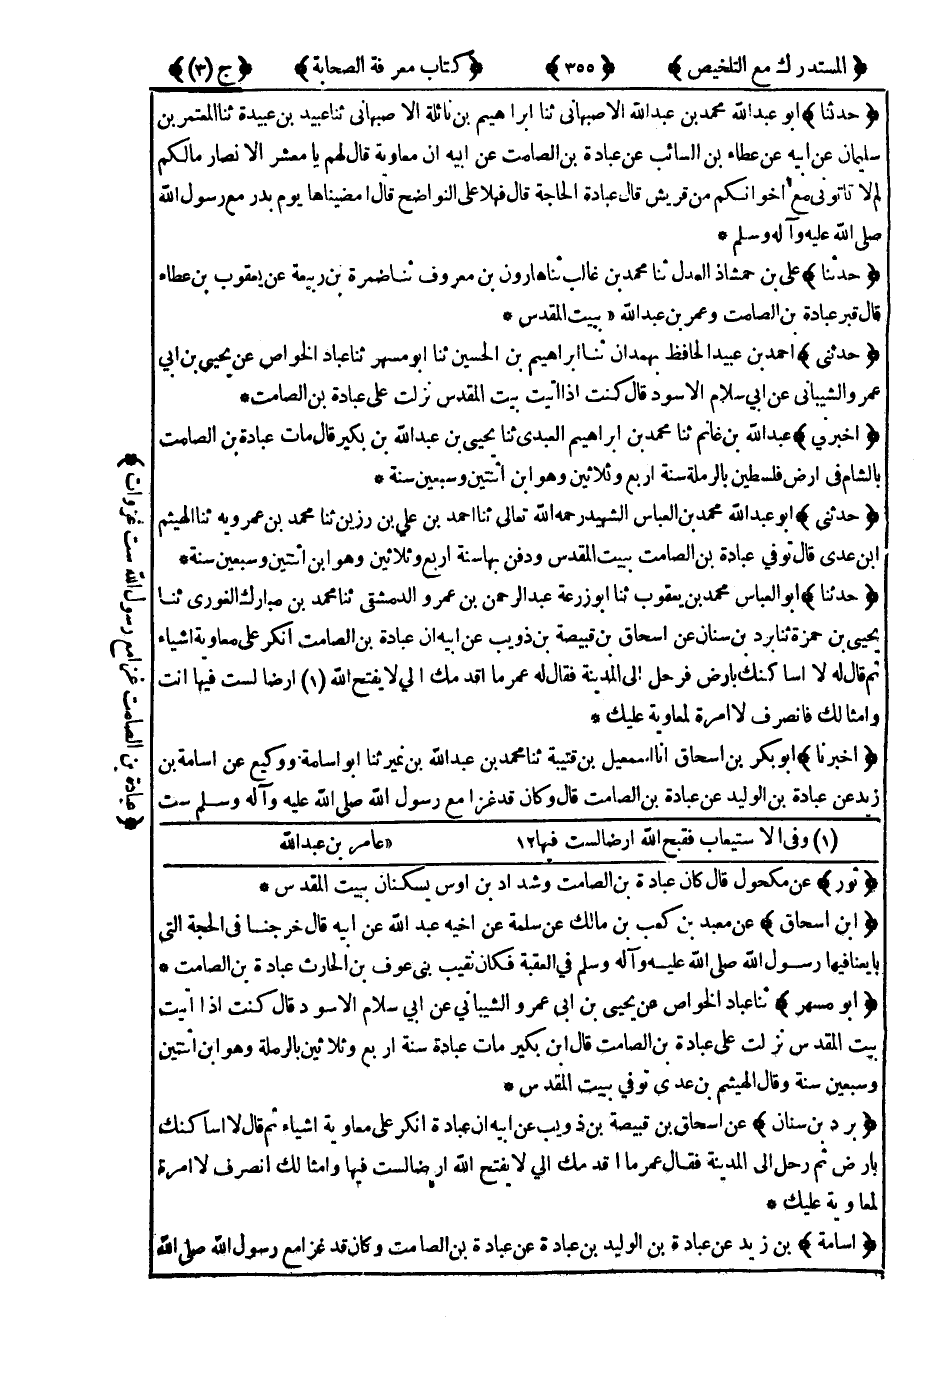 ﴿ المستدرك مع التلخيص ﴾ ﴿ ٣٥٥ ﴾ ﴿ كتاب معرفة الصحابة ﴾ ﴿ ج (٣) ﴾
﴿ حدثنا ﴾ ابو عبدالله محمد بن عبدالله الاصبهانى ثنا ابراهيم بن نائلة الاصبهانى ثنا عبيد بن عبيدة ثنا المعتمر بن
سليمان عن ابيه عن عطاء بن السائب عن عبادة بن الصامت عن ابيه ان معاوية قال لهم يا معشر الانصار مالكم
لم لا تاتونى مع اخوانكم من قريش قال عبادة الحاجة قال فهلا على النواضح قال امضيناها يوم بدر مع رسول الله
صلى الله عليه وآله وسلم *
﴿ حدثنا ﴾ على بن حمشاذ العدل ثنا محمد بن غالب ثنا هارون بن معروف ثنا ضمرة بن ربيعة عن يعقوب بن عطاء
قال قبر عبادة بن الصامت وعمر بن عبدالله « ببيت المقدس *
﴿ حدثنى ﴾ احمد بن عبيد الحافظ بهمدان ثنا ابراهيم بن الحسين ثنا ابو مسهر ثنا عباد الخواص عن يحيى بن ابي
عمرو الشيبانى عن ابي سلام الاسود قال كنت اذا اتيت بيت المقدس نزلت على عبادة بن الصامت *
﴿ اخبرني ﴾ عبدالله بن غانم ثنا محمد بن ابراهيم العبدى ثنا يحيى بن عبدالله بن بكير قال مات عبادة بن الصامت
بالشام فى ارض فلسطين بالرملة سنة اربع وثلاثين وهو ابن اثنتين وسبعين سنة *
﴿ حدثنى ﴾ ابو عبدالله محمد بن العباس الشهيد رحمه الله تعالى ثنا احمد بن علي بن رزين ثنا محمد بن عمرويه ثنا الهيثم
ابن عدى قال توفي عبادة بن الصامت ببيت المقدس ودفن بها سنة اربع وثلاثين وهو ابن اثنتين وسبعين سنة *
﴿ حدثنا ﴾ ابو العباس محمد بن يعقوب ثنا ابو زرعة عبدالرحمن بن عمرو الدمشقى ثنا محمد بن مبارك الغورى ثنا
يحيى بن حمزة ثنا برد بن سنان عن اسحاق بن قبيصة بن ذويب عن ابيه ان عبادة بن الصامت انكر على معاوية اشياء
ثم قال له لا اساكنك بارض فرحل الى المدينة فقال له عمر ما اقدمك الي لا يفتح الله (١) ارضا لست فيها انت
وامثالك فانصرف لا امرة لمعاوية عليك *
﴿ اخبرنا ﴾ ابو بكر بن اسحاق انا اسمعيل بن قتيبة ثنا محمد بن عبدالله بن نمير ثنا ابو اسامة ووكيع عن اسامة بن
زيد عن عبادة بن الوليد عن عبادة بن الصامت قال وكان قد غزا مع رسول الله صلى الله عليه وآله وسلم ست
﴿ عبادة بن الصامت غزا مع رسول الله ست غزوات ﴾
(١) وفى الاستيعاب فقبح الله ارضا لست فيها ١٢ «عامر بن عبدالله
﴿ ثور ﴾ عن مكحول قال كان عبادة بن الصامت وشداد بن اوس يسكنان ببيت المقدس *
﴿ ابن اسحاق ﴾ عن معبد بن كعب بن مالك عن سلمة عن اخيه عبد الله عن ابيه قال خرجنا فى الحجة التي
بايعنا فيها رسول الله صلى الله عليه وآله وسلم في العقبة فكان نقيب بنى عوف بن الحارث عبادة بن الصامت *
﴿ ابو مسهر ﴾ ثنا عباد الخواص عن يحيى بن ابى عمرو الشيباني عن ابي سلام الاسود قال كنت اذا اتيت
بيت المقدس نزلت على عبادة بن الصامت قال ابن بكير مات عبادة سنة اربع وثلاثين بالرملة وهو ابن اثنتين
وسبعين سنة وقال الهيثم بن عدى توفي ببيت المقدس *
﴿ برد بن سنان ﴾ عن اسحاق بن قبيصة بن ذويب عن ابيه ان عبادة انكر على معاوية اشياء ثم قال لا اساكنك
بارض ثم رحل الى المدينة فقال عمر ما اقدمك الي لا يفتح الله ارضا لست فيها وامثالك انصرف لا امرة
لمعاوية عليك *
﴿ اسامة ﴾ بن زيد عن عبادة بن الوليد بن عبادة عن عبادة بن الصامت وكان قد غزا مع رسول الله صلى الله